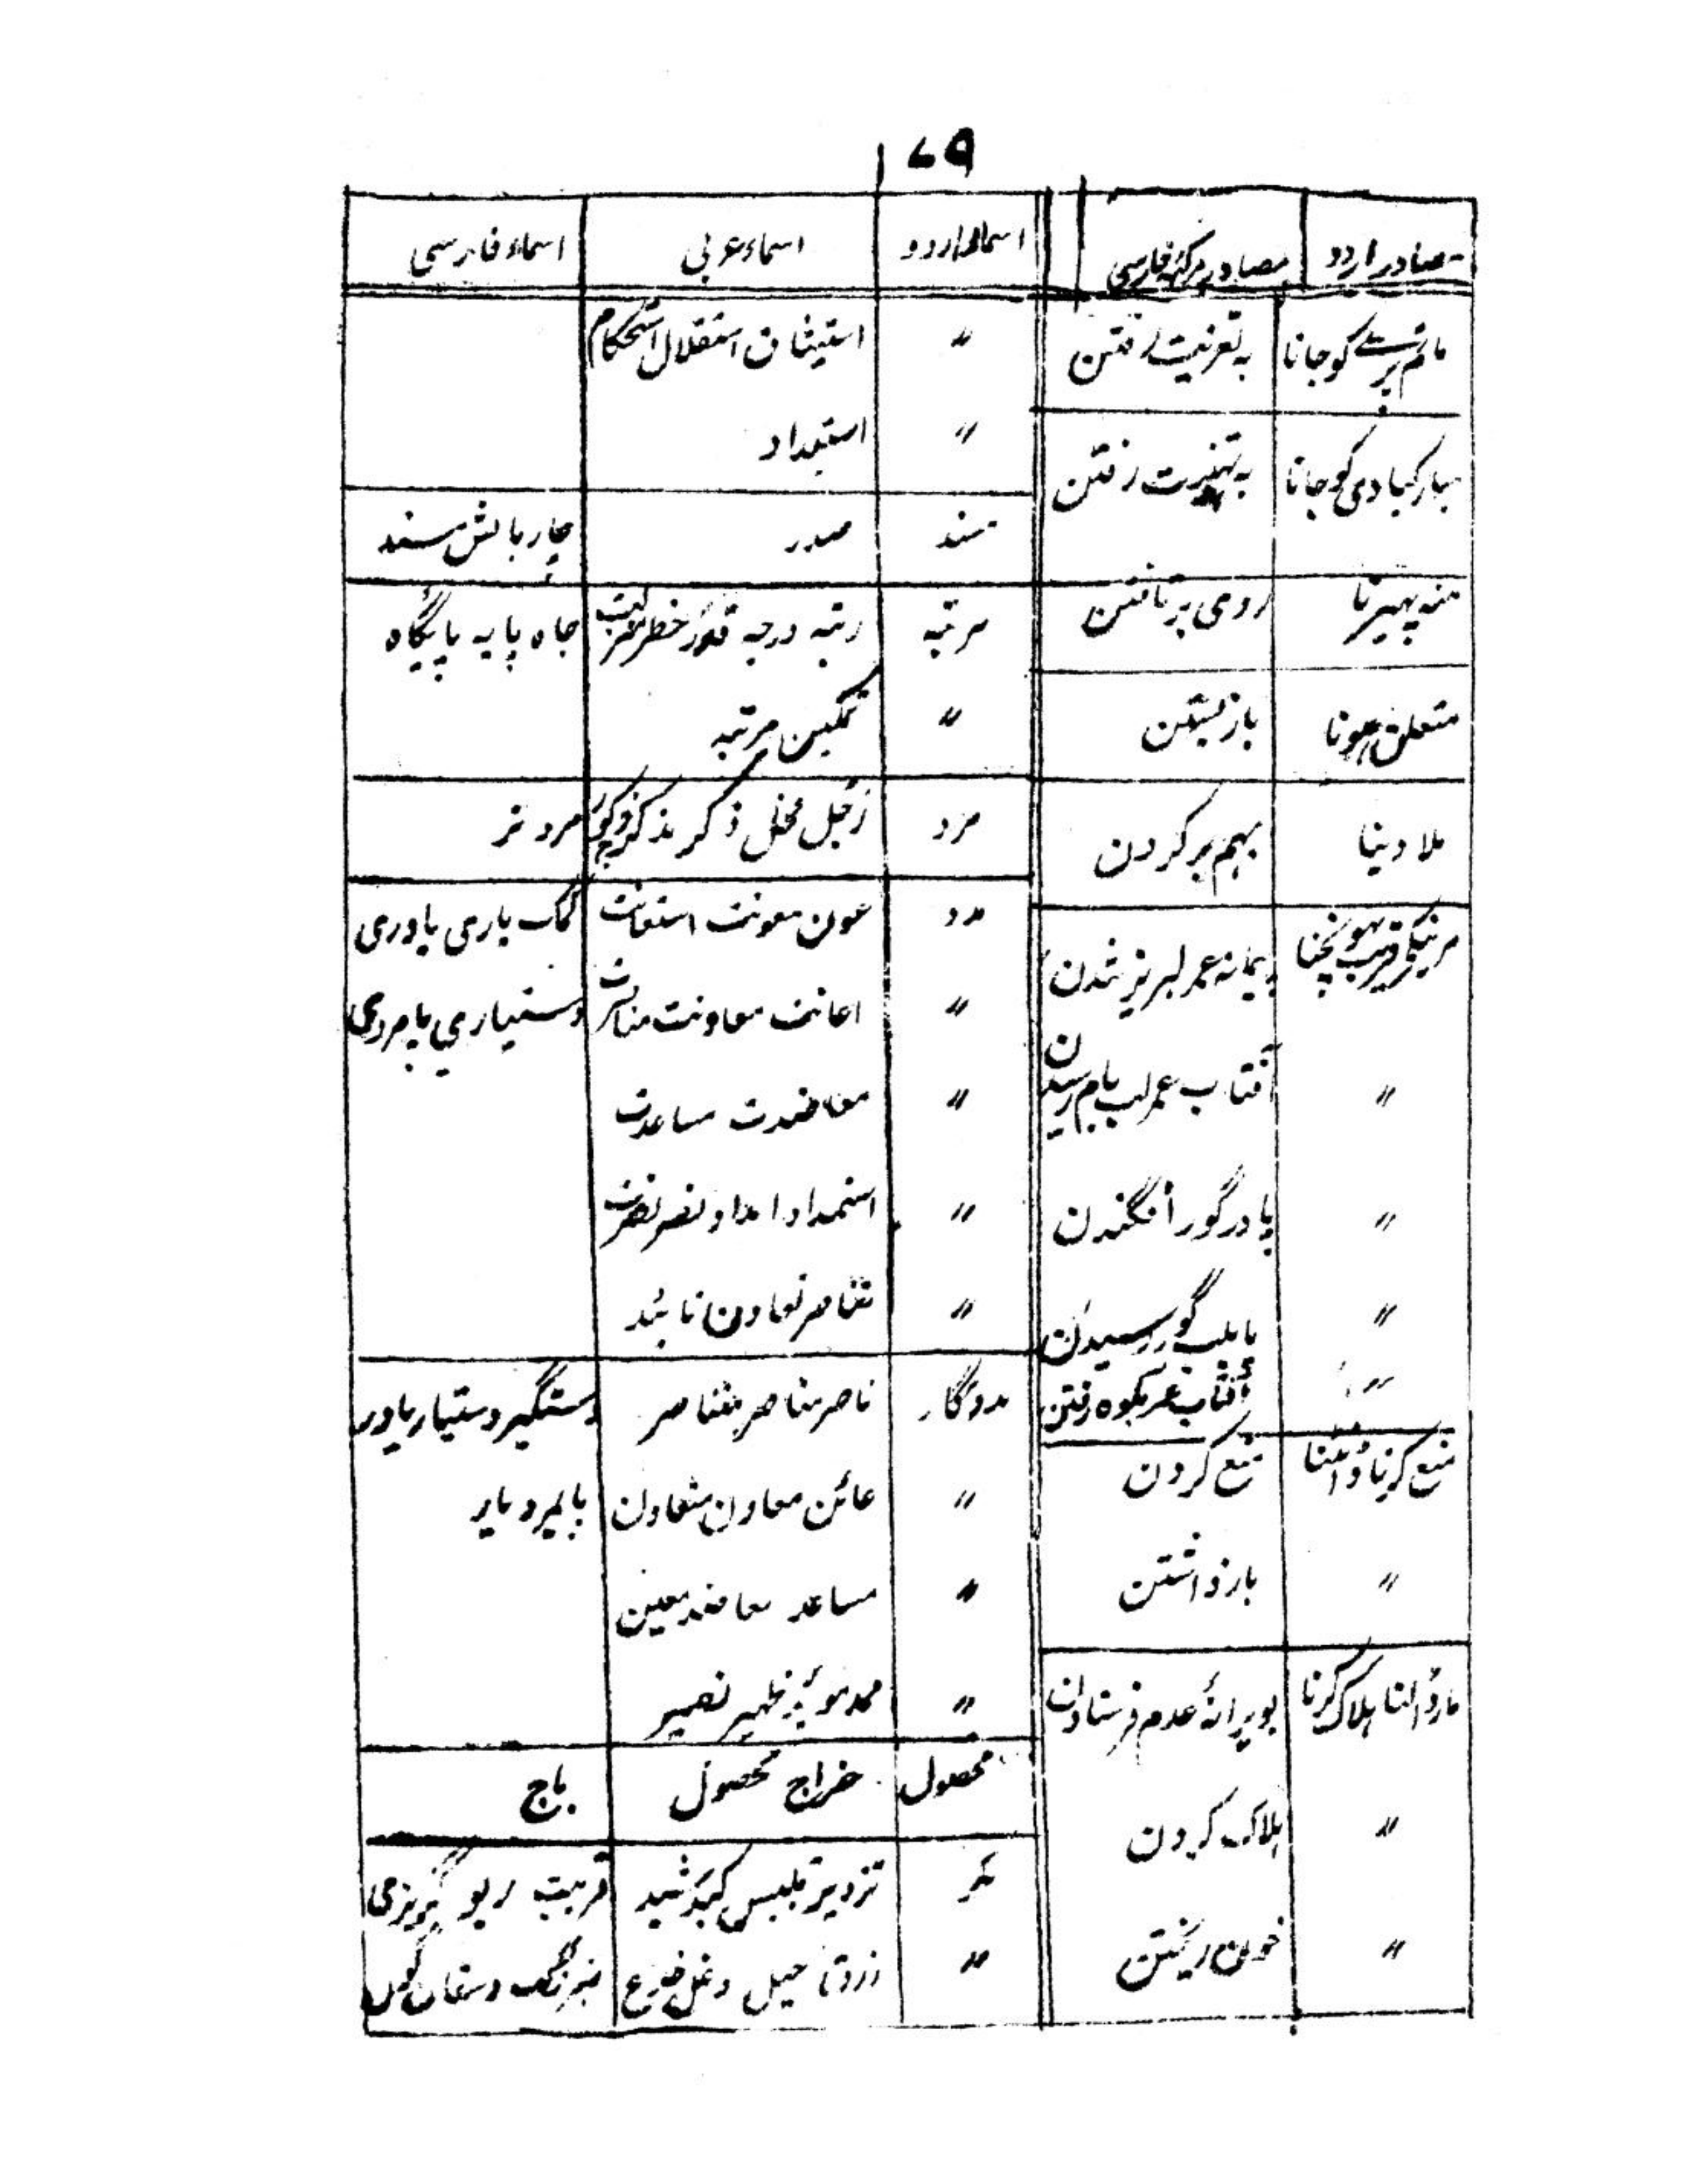 ۷۹
مصادر اردو | مصادر مرکبہ فارسی | اسماء اردو | اسماء عربی | اسماء فارسی
ماتم پرسے کو جانا | بہ تعزیت رفتن
مبارکبادی کو جانا | بہ تہنیت رفتن
منہ پھیرنا | روی برتافتن
متعلق ہونا | باز بستن
ملا دینا | بہم بر کردن
مرنیکے قریب پہونچنا | پیمانہ عمر لبریز شدن
〃 | آفتاب عمر لب بام رسیدن
〃 | پا در گور افگندن
〃 | پا بلب گور رسیدن
〃 | آفتاب عمر بکوہ رفتن
منع کرنا ڈانٹنا | منع کردن
〃 | باز داشتن
مار ڈالنا ہلاک کرنا | بویرانۂ عدم فرستادن
〃 | ہلاک کردن
〃 | خون ریختن
〃 | استیثاق استقلال استحکام
〃 | استبداد
مسند | صدر | چار بالش مسند
مرتبہ | رتبہ درجہ قدر خطر منزلت | جاہ پایہ پایگاہ
〃 | تمکین مرتبہ
مرد | رجل فحل ذکر مذکر ذکور | مرد نر
مدد | عون معونت استعانت | کمک یاری یاوری
〃 | اعانت معاونت مناصرت | دستیاری پامردی
〃 | معاضدت مساعدت
〃 | استمداد امداد نصر نصرت
〃 | تناصر تعاون تائید
مددگار | ناصر مناصر متناصر | دستگیر دستیار یاور
〃 | عائن معاون متعاون | پایمرد یار
〃 | مساعد معاضد معین
〃 | ممد موئید ظہیر نصیر
محصول | خراج محصول | باج
مکر | تزویر تلبیس کید شید | فریب ریو گریزی
〃 | زرق حیل دغل خدع | نیرنگ دستان گول